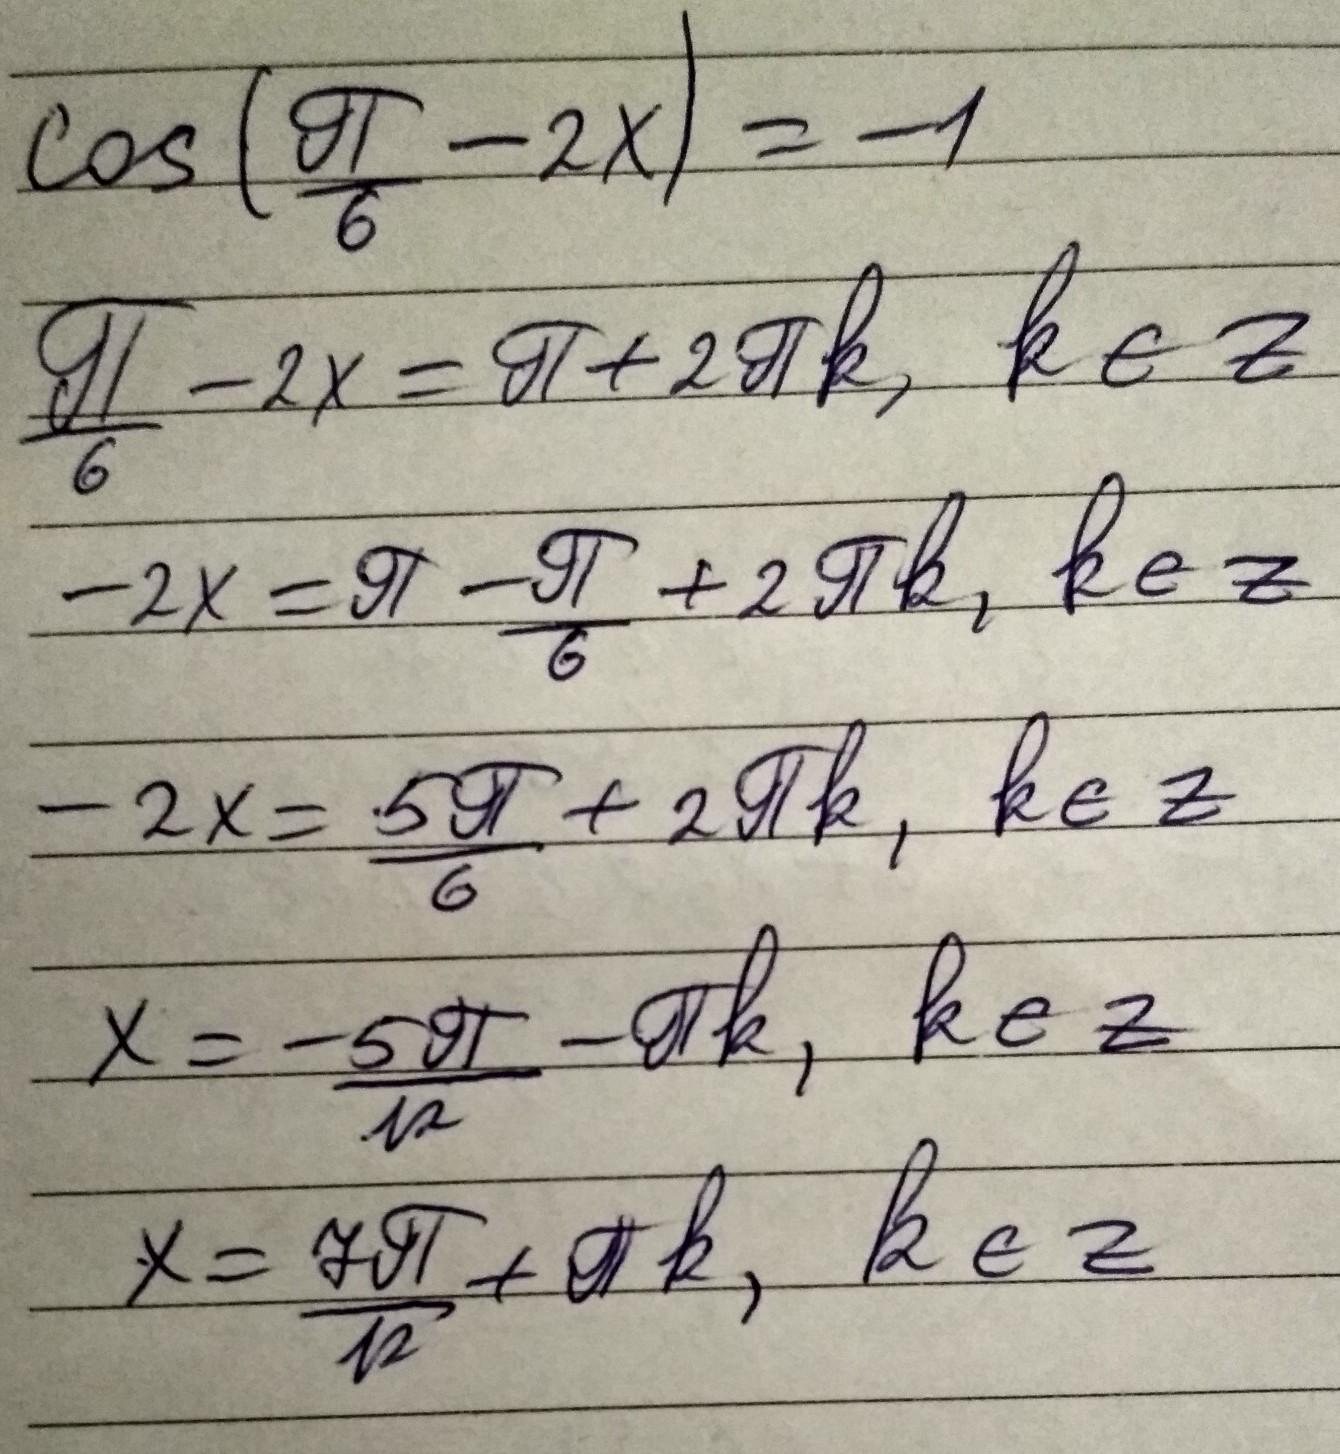 cos(π/6 - 2x) = -1
π/6 - 2x = π + 2πk, k ∈ z
-2x = π - π/6 + 2πk, k ∈ z
-2x = 5π/6 + 2πk, k ∈ z
x = -5π/12 - πk, k ∈ z
x = 7π/12 + πk, k ∈ z